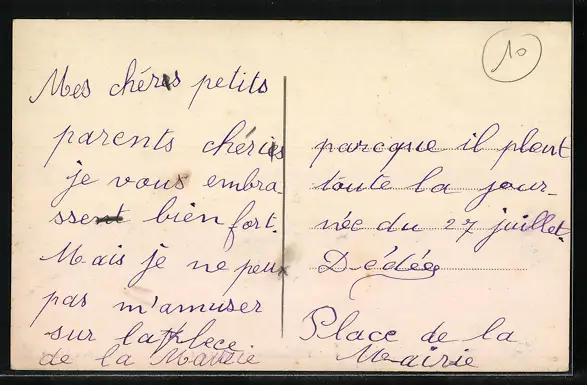 10
Mes chéris petits
parents chéries
je vous embra-
ssent bien fort.
Mais je ne peux
pas m'amuser
sur la place
de la Mairie
parcque il pleut
toute la jour-
née du 27 juillet.
Dédée
Place de la
Mairie